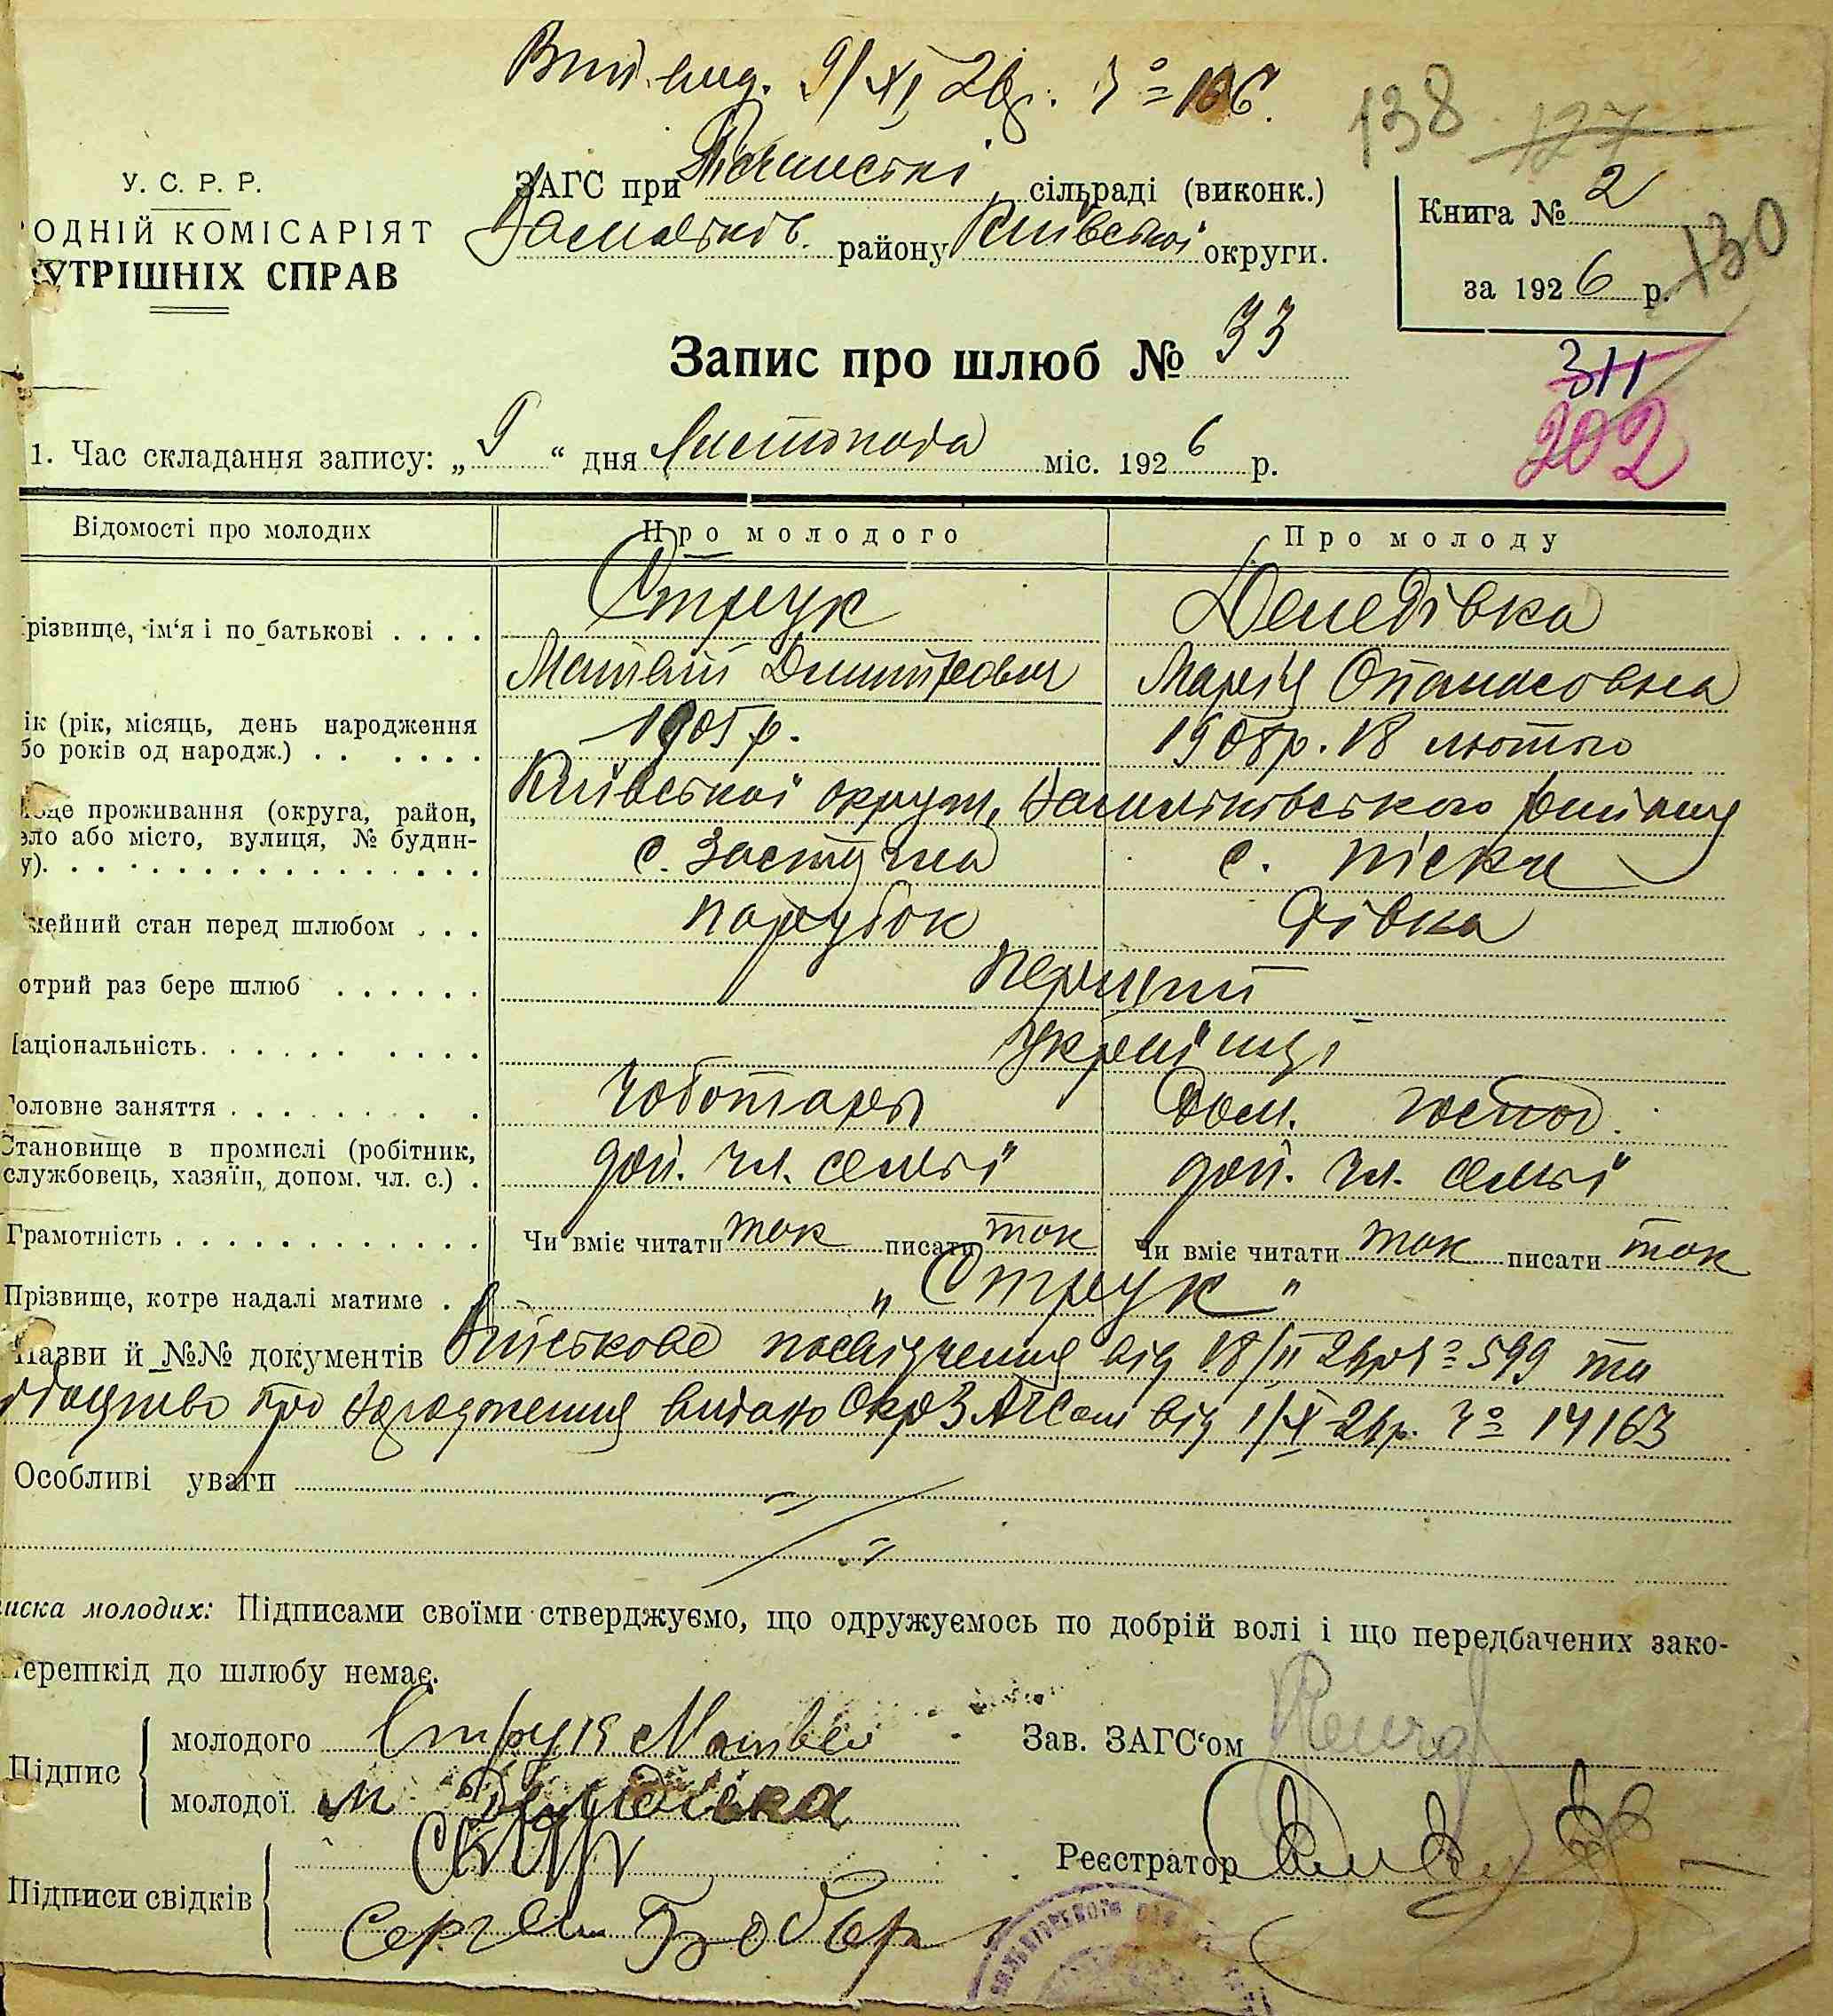 Вип. вид. 9/XI 26р. № 106.
138 127
У. С. Р. Р.
ЗАГС при Піщанській сільраді (виконк.)
Книга № 2
ОДНІЙ КОМІСАРІЯТ
Васильківськ. району Київської округи.
130
УТРІШНІХ СПРАВ
за 1926 р.
Запис про шлюб № 33
311
202
1. Час складання запису: „ 9 “ дня Листопада міс. 1926 р.
Відомості про молодих Про молодого Про молоду
різвище, ім‘я і по батькові . . . . Струк Демедівка
Матвій Дмитрович Марія Опанасовна
ік (рік, місяць, день народження
бо років од народж.) . . . . . . 1905 р. 1908 р. 18 лютого
сце проживання (округа, район, Київської округи, Васильківського району
ело або місто, вулиця, № будин-
у). . . с. Застугна с. Піски
мейний стан перед шлюбом . . . парубок дівка
отрий раз бере шлюб . . . . . . перший
аціональність. . . . . . . . . . українці
оловне заняття . . . . . . . . . чоботарь Дом. господ.
Становище в промислі (робітник,
службовець, хазяїн, допом. чл. с.) . доп. чл. семьї доп. чл. семьї
Грамотність . . . . . . . . . . . . . Чи вміє читати так писати так Чи вміє читати так писати так
Прізвище, котре надалі матиме . „ Струк “
Назви й №№ документів Військове посвідчення від 18/II 26р № 599 та
про народження видано Окр ЗАГСом від 1/X-26р. № 14163
Особливі уваги
иска молодих: Підписами своїми стверджуємо, що одружуємось по добрій волі і що передбачених зако-
ерешкід до шлюбу немає.
Підпис молодого Струк Матвей
Зав. ЗАГС‘ом
молодої. М Демедівка
Реєстратор
Підписи свідків
Сергей Бобер